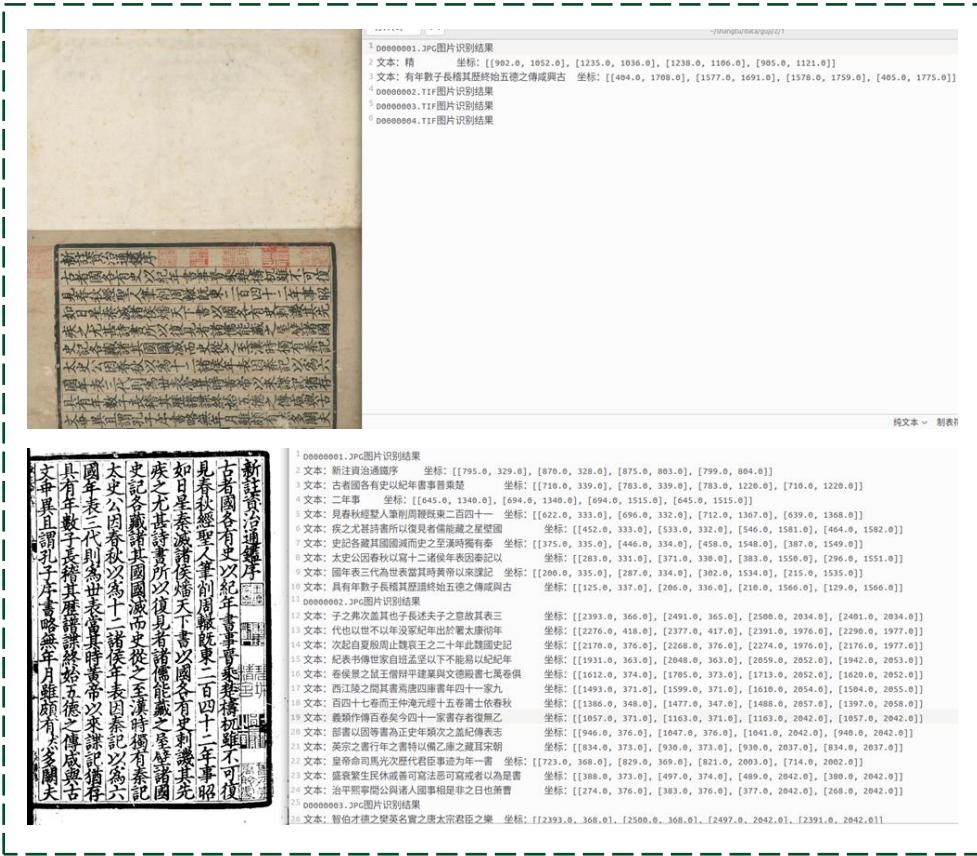 新註資治通鑑序
古者國各有史以紀年書事晉乘楚檮杌雖不可復
見春秋經聖人筆削周轍既東二百四十二年事昭
如日星秦滅諸侯燔天下書以國各有史刺譏其先
疾之尤甚詩書所以復見者諸儒能藏之屋壁諸國
史記各藏諸其國國滅而史從之至漢時獨有秦記
太史公因春秋以為十二諸侯年表因秦記以為六
國年表三代則為世表當其時黃帝以來諜記猶存
具有年數子長稽其歷譜諜終始五德之傳咸與古
文乖異且謂孔子序書略無年月雖頗有然多闕夫
~/shangtu/data/guji/2/1
1 D0000001.JPG图片识别结果
2 文本: 精 坐标: [[902.0, 1052.0], [1235.0, 1036.0], [1238.0, 1106.0], [905.0, 1121.0]]
3 文本: 有年數子長稽其歷終始五德之傳咸興古 坐标: [[404.0, 1708.0], [1577.0, 1691.0], [1578.0, 1759.0], [405.0, 1775.0]]
4 D0000002.TIF图片识别结果
5 D0000003.TIF图片识别结果
6 D0000004.TIF图片识别结果
纯文本 制表符
新註資治通鑑序
古者國各有史以紀年書事晉乘楚檮杌雖不可復
見春秋經聖人筆削周轍既東二百四十二年事昭
如日星秦滅諸侯燔天下書以國各有史刺譏其先
疾之尤甚詩書所以復見者諸儒能藏之屋壁諸國
史記各藏諸其國國滅而史從之至漢時獨有秦記
太史公因春秋以為十二諸侯年表因秦記以為六
國年表三代則為世表當其時黃帝以來諜記猶存
具有年數子長稽其歷譜諜終始五德之傳咸與古
文乖異且謂孔子序書略無年月雖頗有然多闕夫
1 D0000001.JPG图片识别结果
2 文本: 新注資治通鐵序 坐标: [[795.0, 329.0], [870.0, 328.0], [875.0, 803.0], [799.0, 804.0]]
3 文本: 古者國各有史以紀年書事普乘楚 坐标: [[710.0, 339.0], [783.0, 339.0], [783.0, 1220.0], [710.0, 1220.0]]
4 文本: 二年事 坐标: [[645.0, 1340.0], [694.0, 1340.0], [694.0, 1515.0], [645.0, 1515.0]]
5 文本: 見春秋經堅人筆削周鞭既東二百四十一 坐标: [[622.0, 333.0], [696.0, 332.0], [712.0, 1367.0], [639.0, 1368.0]]
6 文本: 疾之尤甚詩書所以復見者儒能藏之星壁國 坐标: [[452.0, 333.0], [533.0, 332.0], [546.0, 1581.0], [464.0, 1582.0]]
7 文本: 史記各藏其國國減而史之至漢時獨有秦 坐标: [[375.0, 335.0], [446.0, 334.0], [458.0, 1548.0], [387.0, 1549.0]]
8 文本: 太史公因春秋以寫十二诸侯年表因秦記以 坐标: [[283.0, 331.0], [371.0, 330.0], [383.0, 1550.0], [296.0, 1551.0]]
9 文本: 國年表三代為世表當其時黄帝以来諜記 坐标: [[200.0, 335.0], [287.0, 334.0], [302.0, 1534.0], [215.0, 1535.0]]
10 文本: 具有年數子長稽其歷譜終始五德之傳咸與古 坐标: [[125.0, 337.0], [206.0, 336.0], [210.0, 1566.0], [129.0, 1566.0]]
11 D0000002.JPG图片识别结果
12 文本: 子之弗次盖其也子長述夫子之意故其表三 坐标: [[2393.0, 366.0], [2491.0, 365.0], [2500.0, 2034.0], [2401.0, 2034.0]]
13 文本: 代也以世不以年没冢紀年出於署太康彻年 坐标: [[2276.0, 418.0], [2377.0, 417.0], [2391.0, 1976.0], [2290.0, 1977.0]]
14 文本: 次起自夏殷周止魏哀王之二十年此魏國史記 坐标: [[2170.0, 376.0], [2268.0, 376.0], [2274.0, 1976.0], [2176.0, 1977.0]]
15 文本: 紀表书傳世家自班孟坚以下不能易以紀紀年 坐标: [[1931.0, 363.0], [2048.0, 363.0], [2059.0, 2052.0], [1942.0, 2053.0]]
16 文本: 卷侯景之鼠王僧辩平建業與文德殿書七萬卷俱 坐标: [[1612.0, 374.0], [1705.0, 373.0], [1713.0, 2052.0], [1620.0, 2052.0]]
17 文本: 西江陵之間其書焉唐四庫書年四十一家九 坐标: [[1493.0, 371.0], [1599.0, 371.0], [1610.0, 2054.0], [1504.0, 2055.0]]
18 文本: 百四十七卷而王仲淹元經十五卷莆士依春秋 坐标: [[1386.0, 348.0], [1477.0, 347.0], [1488.0, 2057.0], [1397.0, 2058.0]]
19 文本: 義類作傳百卷矣今四十一家書存者復無乙 坐标: [[1057.0, 371.0], [1163.0, 371.0], [1163.0, 2042.0], [1057.0, 2042.0]]
20 文本: 部書以固等書為正史年類次之盖紀傳表志 坐标: [[946.0, 376.0], [1047.0, 376.0], [1041.0, 2042.0], [940.0, 2042.0]]
21 文本: 英宗之書行年之書特以備乙庫之藏耳宋朝 坐标: [[834.0, 373.0], [930.0, 373.0], [930.0, 2037.0], [834.0, 2037.0]]
22 文本: 皇帝命司馬光次歷代君臣事迹为年一書 坐标: [[723.0, 368.0], [829.0, 369.0], [821.0, 2003.0], [714.0, 2002.0]]
23 文本: 盛衰繁生民休戚善可寫法恶可寫戒者以為是書 坐标: [[388.0, 373.0], [497.0, 374.0], [489.0, 2042.0], [380.0, 2042.0]]
24 文本: 治平熙寧間公與诸人國事相是非之日也萧曹 坐标: [[274.0, 376.0], [383.0, 376.0], [377.0, 2042.0], [268.0, 2042.0]]
25 D0000003.JPG图片识别结果
26 文本: 智伯才德之樊英名實之唐太宗君臣之樂 坐标: [[2393.0, 368.0], [2500.0, 368.0], [2497.0, 2042.0], [2391.0, 2042.0]]